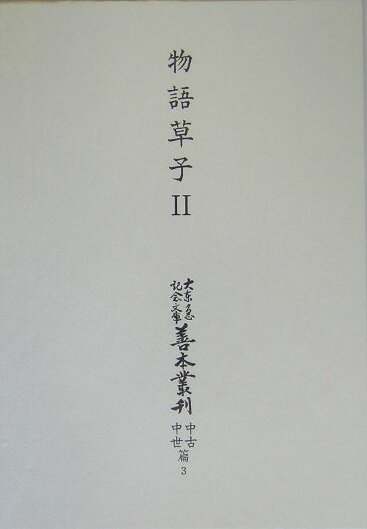 物語草子II
大東急
記念文庫
善本叢刊
中古
中世
篇
3